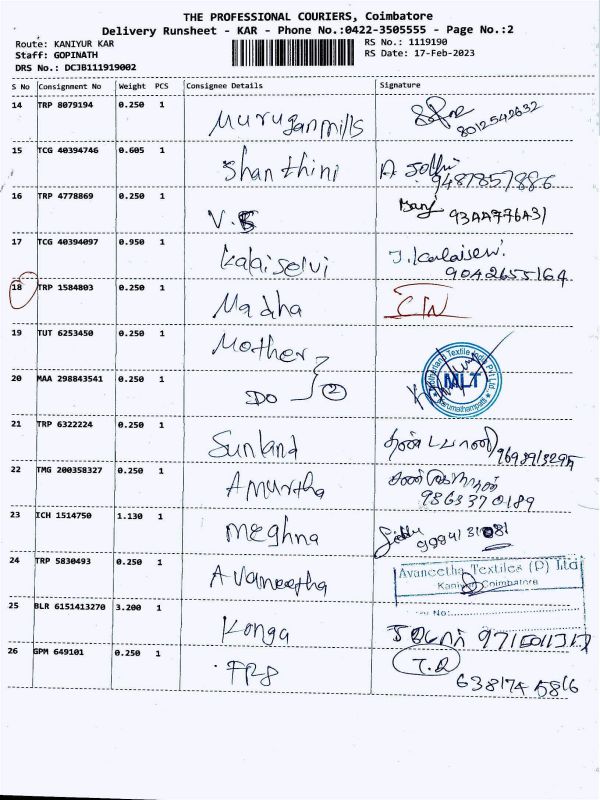 THE PROFESSIONAL COURIERS, Coimbatore
Delivery Runsheet - KAR - Phone No.:0422-3505555 - Page No.:2
Route: KANIYUR KAR
RS No.: 1119190
Staff: GOPINATH
RS Date: 17-Feb-2023
DRS No.: DCJB111919002
S No Consignment No Weight PCS Consignee Details Signature
14 TRP 8079194 0.250 1
Muruganmills
8012542632
15 TCG 40394746 0.605 1
Shanthini
9487857886
16 TRP 4778869 0.250 1
17 TCG 40394097 0.950 1
Kalaiselvi J. Kalaiselvi.
9042655164
18 TRP 1584803 0.250 1
Madha
19 TUT 6253450 0.250 1
Mother
20 MAA 298843541 0.250 1
DO 2
MLT
21 TRP 6322224 0.250 1
Sunland தண்டபாணி
22 TMG 200358327 0.250 1
Amurtha
9863370189
23 ICH 1514750 1.130 1
Meghna
24 TRP 5830493 0.250 1
Avaneetha
Avaneetha Textiles (P) Ltd
Kaniyur Coimbatore
25 BLR 6151413270 3.200 1
No:
Konga
26 GPM 649101 0.250 1
638174 5816